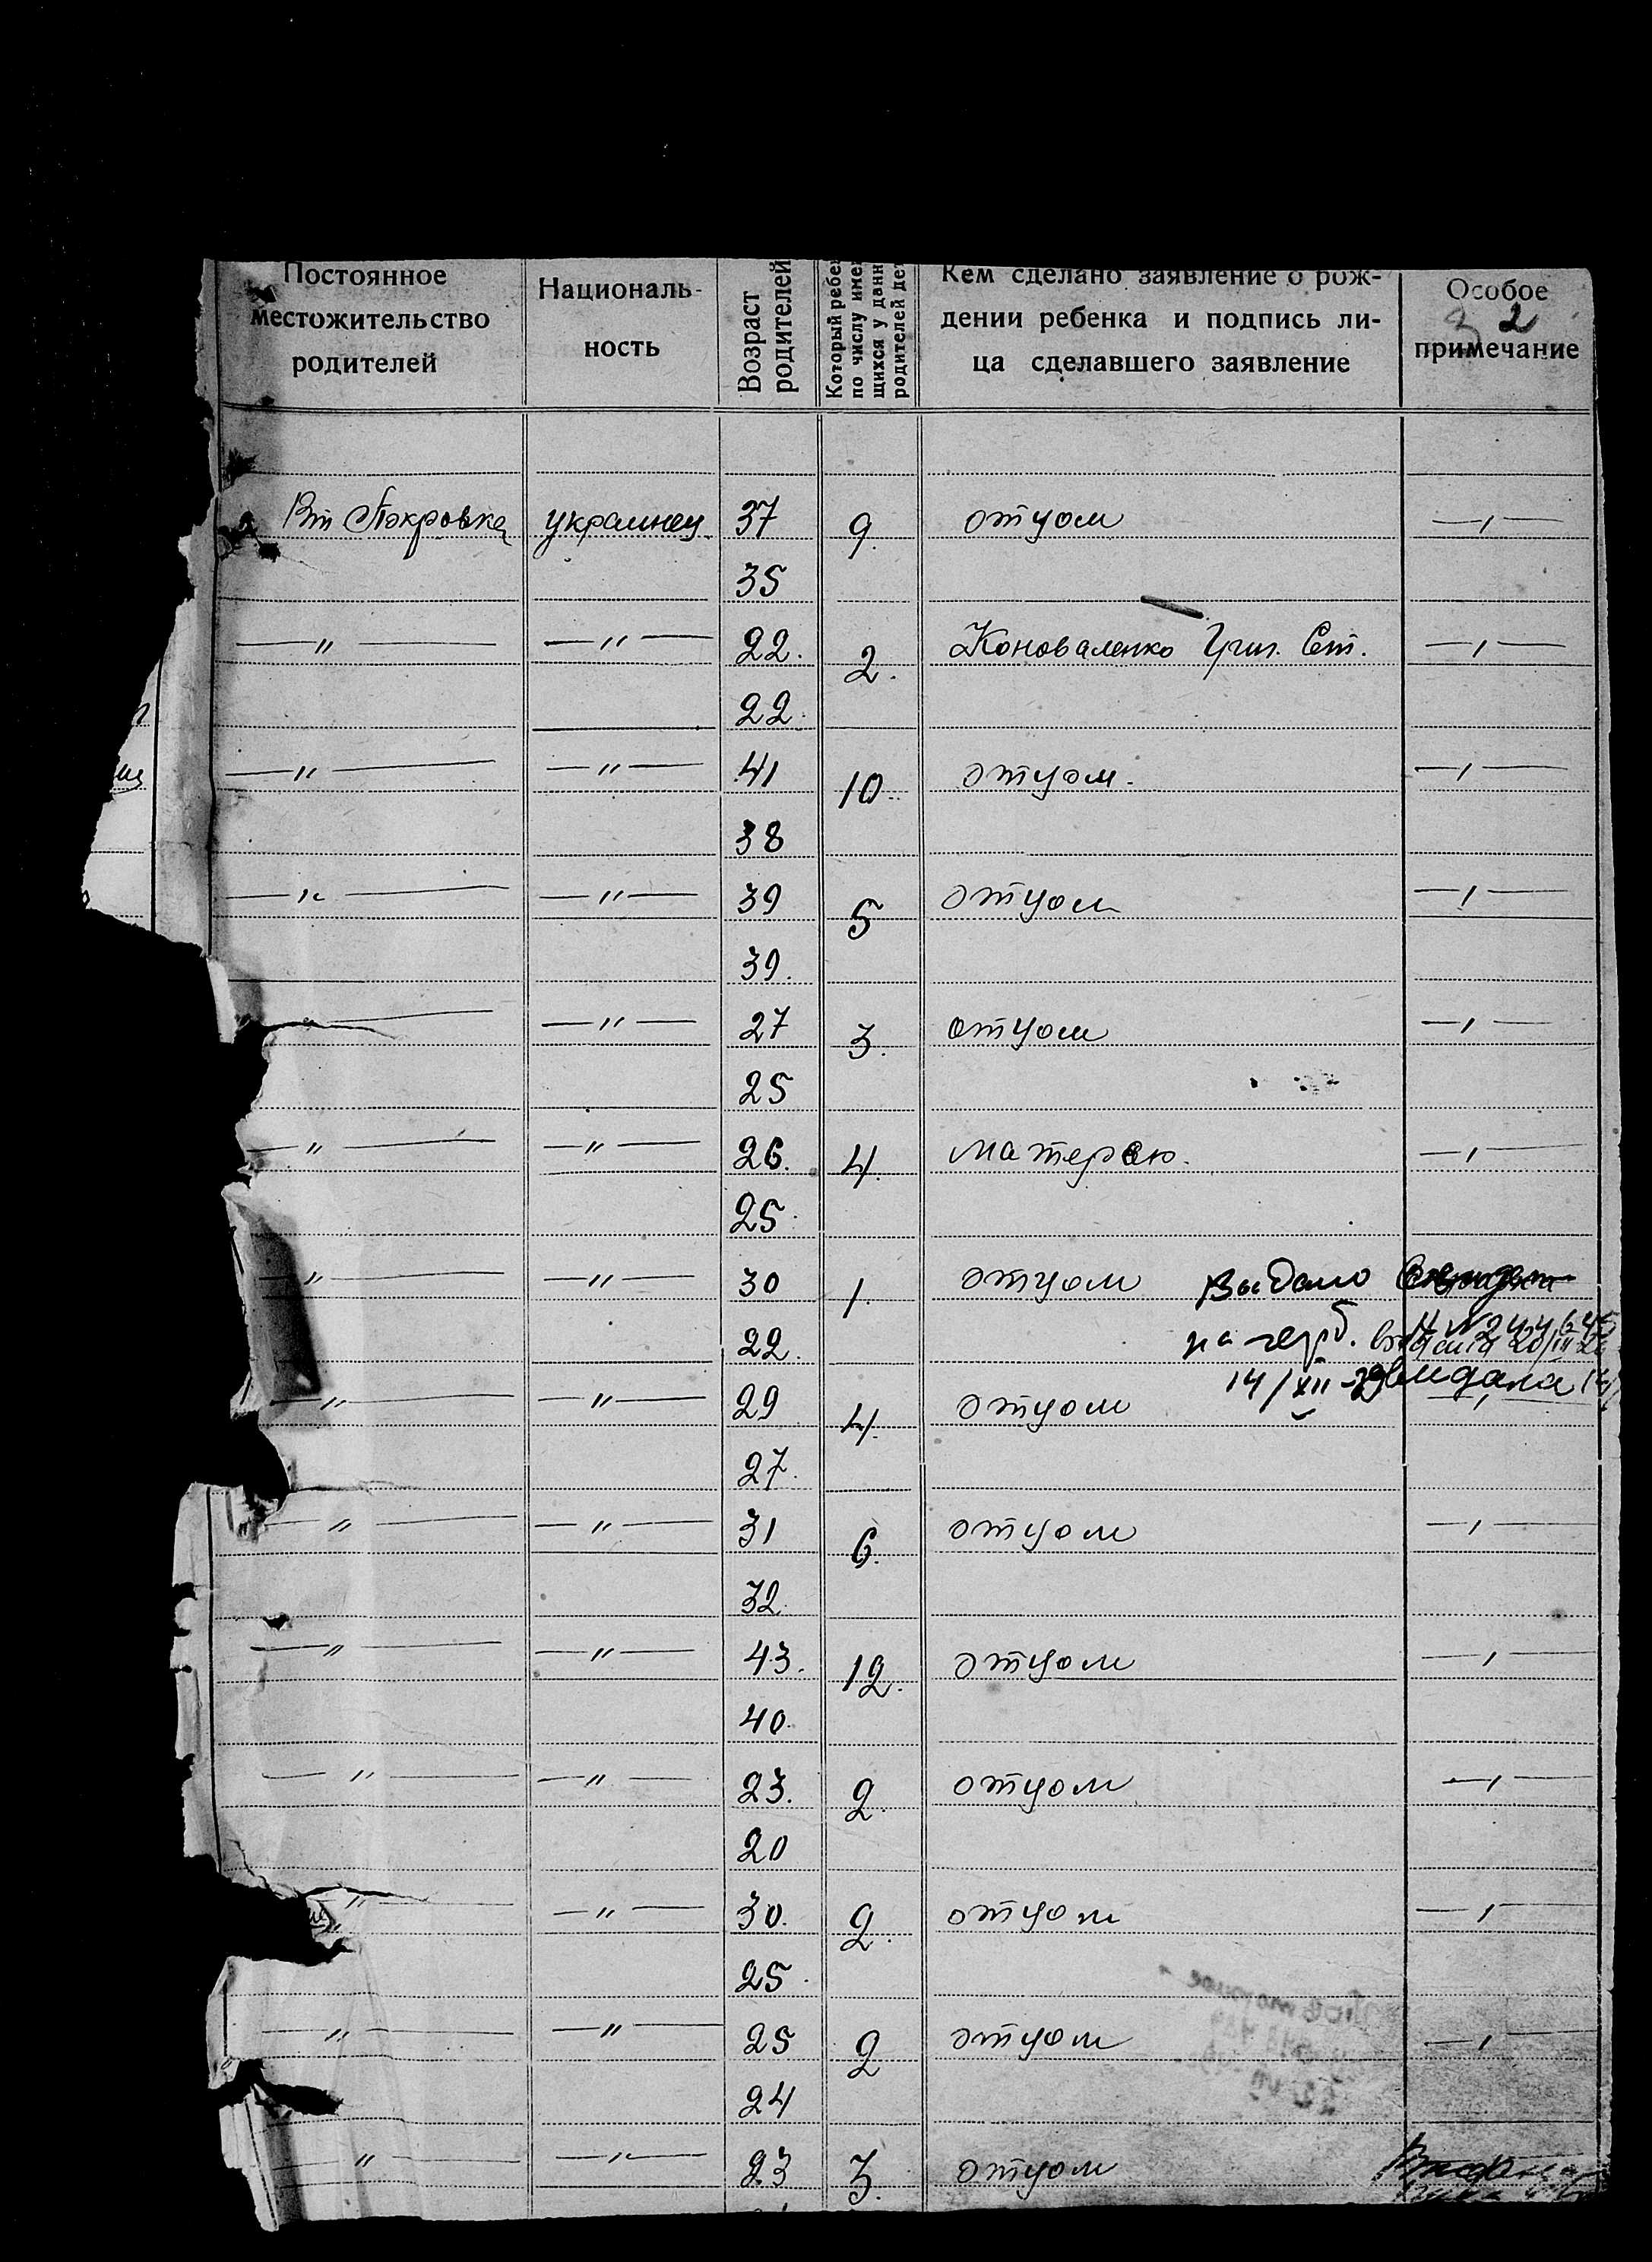 Постоянное местожительство родителей
Националь-ность
Возраст родителей
Который ребе по числу име щихся у данн родителей дет
Кем сделано заявление о рож-дении ребенка и подпись ли-ца сделавшего заявление
Особое примечание
2
Вт Покровка украинец 37 9. отцом —〃—
35
—〃— —〃— 22. 2. Коноваленко Григ. —〃—
22.
—〃— —〃— 41 10. отцом. —〃—
38
—〃— —〃— 39 5 отцом —〃—
39.
—〃— —〃— 27 3. отцом —〃—
25
—〃— —〃— 26. 4. матерью. —〃—
25.
—〃— —〃— 30 1. отцом Выдано
22. на
14/XII
—〃— —〃— 29 4. отцом —〃—
27.
—〃— —〃— 31 6. отцом —〃—
32.
—〃— —〃— 43. 12. отцом —〃—
40.
—〃— —〃— 23. 2. отцом —〃—
20
—〃— —〃— 30. 2. отцом —〃—
25.
—〃— —〃— 25 2 отцом —〃—
24
—〃— —〃— 23 3. отцом